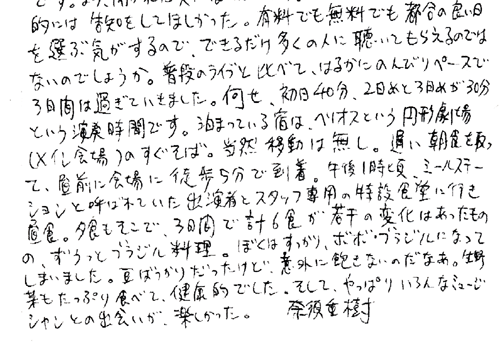 的には告知をしてほしかった。有料でも無料でも都合の良い日
を選ぶ気がするので、できるだけ多くの人に聴いてもらえるのでは
ないのでしょうか。普段のライブと比べて、はるかにのんびりペースで
3日間は過ぎていきました。何せ、初日40分、2日めと3日めが30分
という演奏時間です。泊まっている宿は、ヘリオスという円形劇場
(メイン会場)のすぐそば。当然移動は無し。遅い朝食を取っ
て、昼前に会場に徒歩5分で到着。午後1時頃、ミールステー
ションと呼ばれていた出演者とスタッフ専用の特設食堂に行き
昼食。夕食もそこで、3日間で計6食が若干の変化はあったもの
の、ずうっとブラジル料理。ぼくはすっかり、ボボ・ブラジルになって
しまいました。豆ばかりだったけど、意外に飽きないのだなあ。生野
菜もたっぷり食べて、健康的でした。そして、やっぱりいろんなミュージ
シャンとの出会いが、楽しかった。 奈須重樹